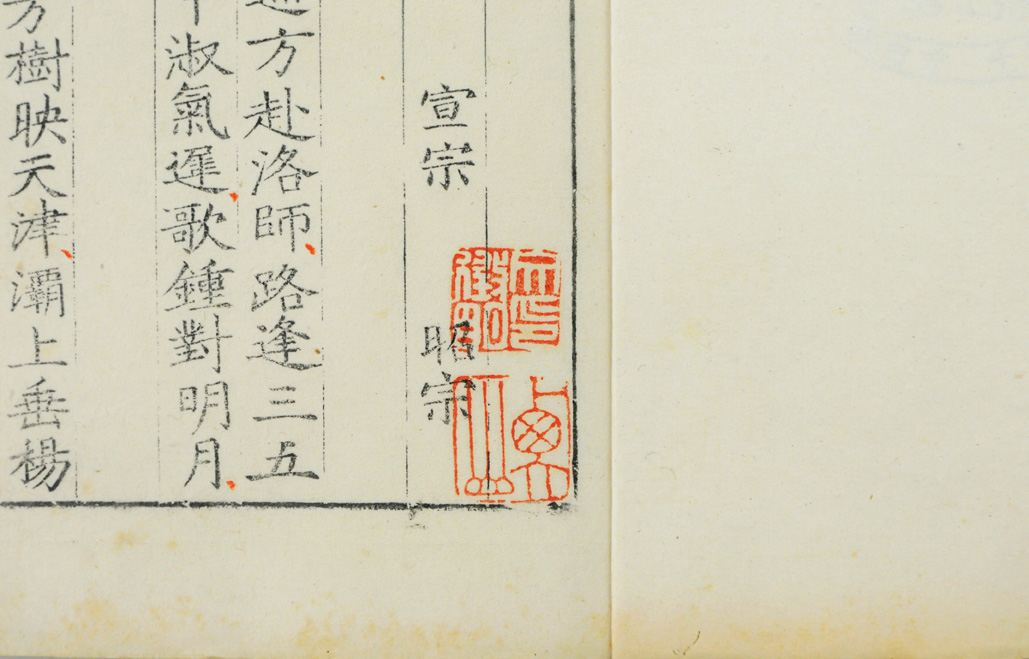 宣宗 昭宗
巡方赴洛師路逢三五
中淑氣遲歌鍾對明月
芳樹映天津灞上垂楊